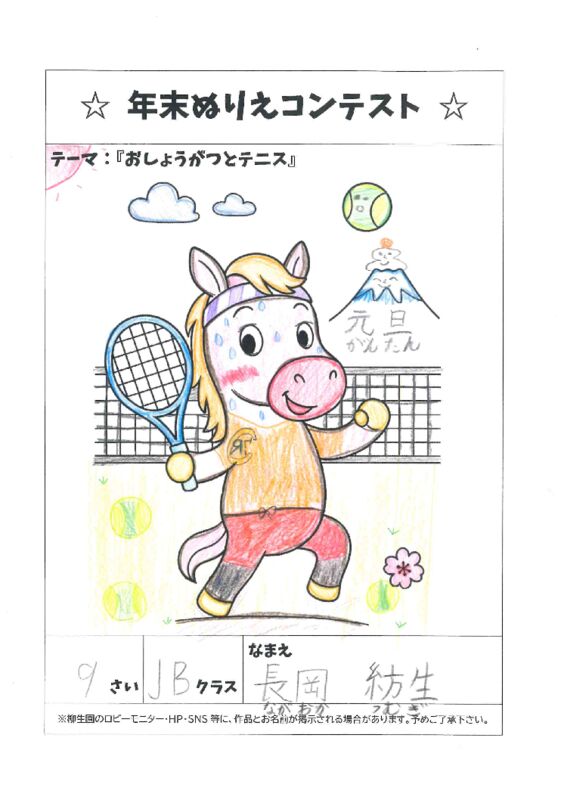 ☆ 年末ぬりえコンテスト ☆
テーマ：『おしょうがつとテニス』
元旦
がんたん
9 さい JB クラス なまえ
長岡 紡生
ながおか つむぎ
※柳生園のロビーモニター・HP・SNS 等に、作品とお名前が掲示される場合があります。予めご了承下さい。